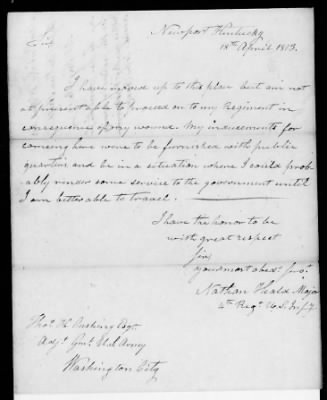 Newport Kentucky
18th April 1813.
Sir
I have moved up to this place but am not
at present able to proceed on to my Regiment in
consequence of my wound. My inducements for
coming here were to be furnished with public
quarters and be in a situation where I could prob-
ably render some service to the government until
I am better able to travel.
I have the honor to be
with great respect
Sir
your most obedt. Servt.
Nathan Heald Major
4th Regt. U.S. Infy.
Thos. H. Cushing Esqr.
Adjt. Genl. U.S. Army
Washington City